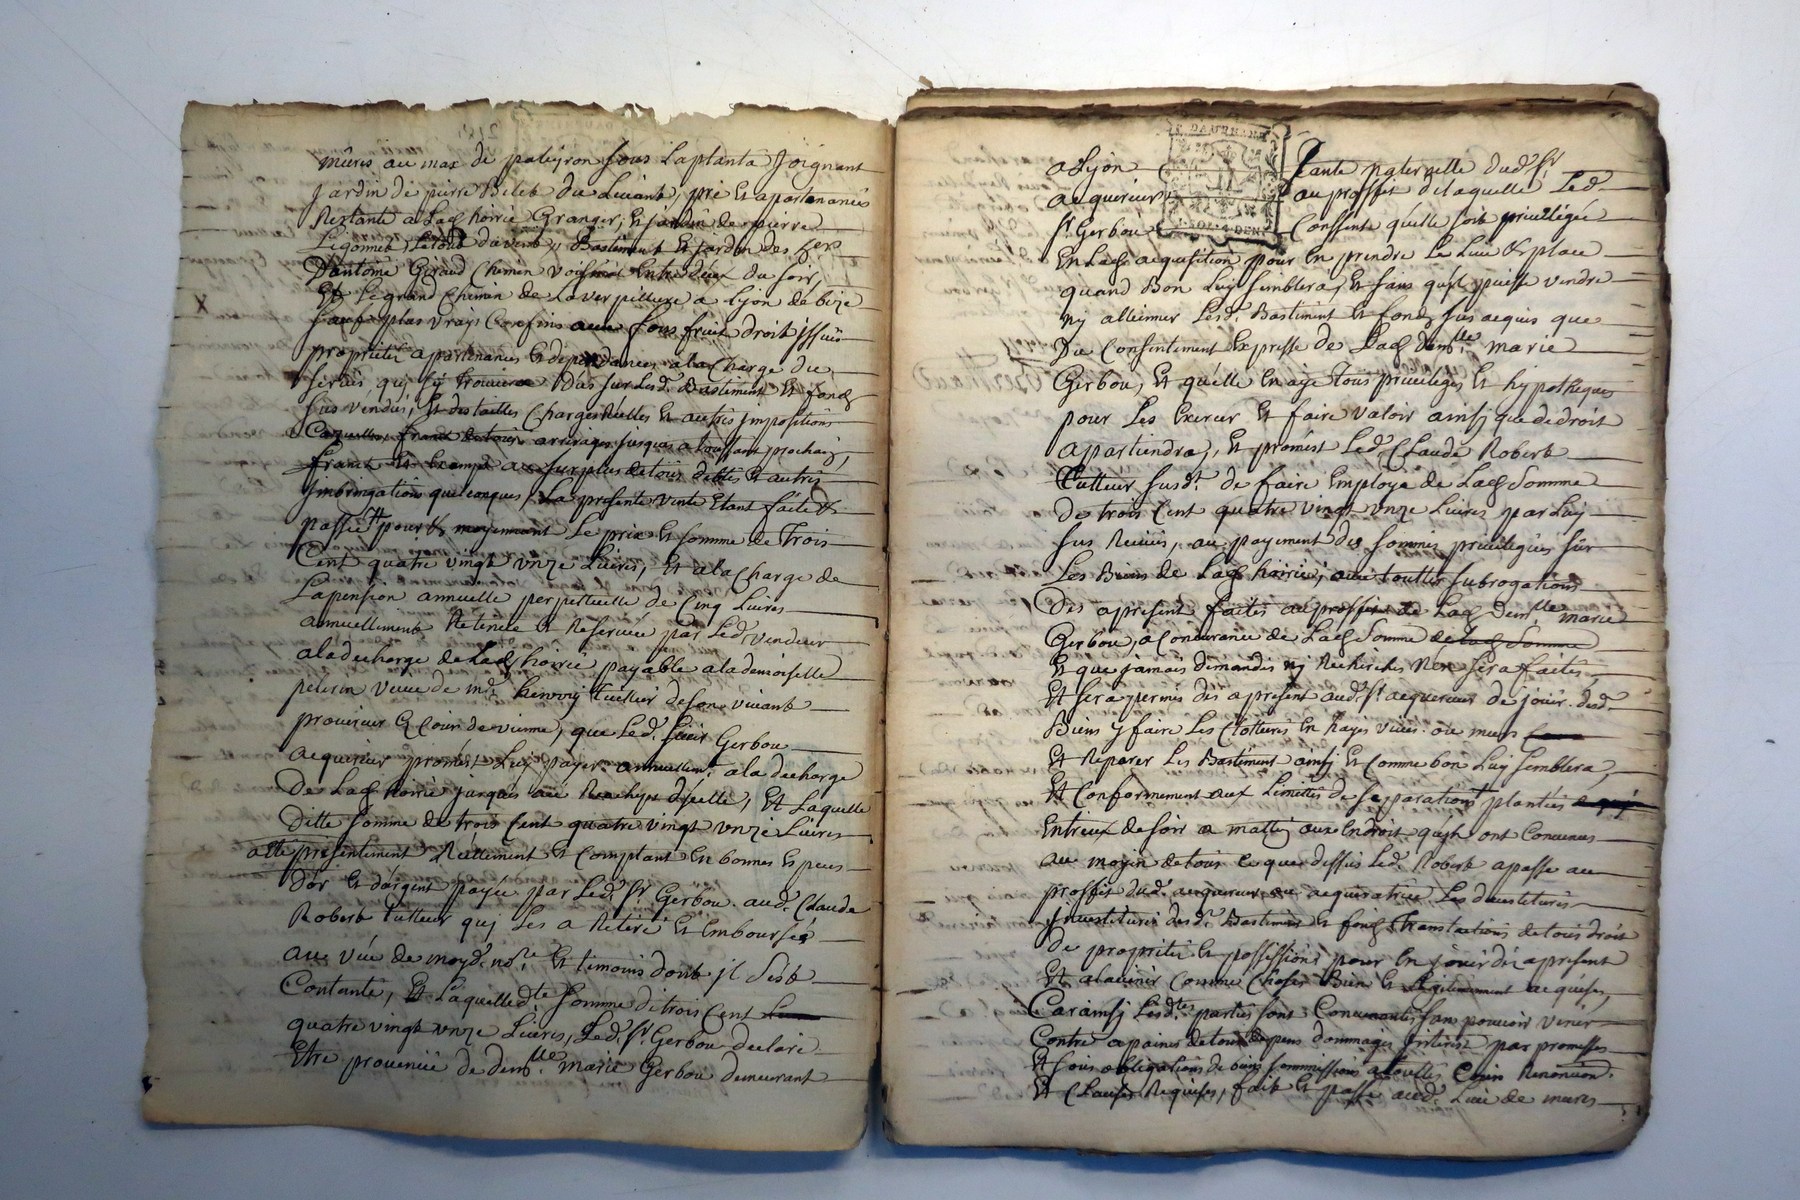 mûres au max de pateyron sous Laplanta Joignant
Jardin de pierre Beleb du Levant, pré Et apartenances
Restante a Lad hoirie Granger, Et jardin de pierre
Legonnet, Le tout davent, Bastiment Et jardin des h.ers
Dantoine Giraud Chemin voisinal Entredeux du soir,
Et Le grand Chemin de Laverpilliere a Lyon de bize
X
sauf plus vrays Confins avec fons fruit droit issües
proprietés apartenances Et dependances ala Charge du
servis quj sy trouvera dus sur Lesd. Bastiment Et fonds
sus vendus, Et des tailles Charges Réelles Et autres jmpositions
franc de tous arrérages jusques a toussaint prochain,
franct Et Exempt au surplus de tous debtes Et autres
jmbringations quelconques, La presente vente Etant faite &
passée pour & moyennant Le prix Et somme de Trois
Cent quatre vingt vnze Livres, Et ala Charge de
Lapension annuelle perpetuelle de Cinq Livres
annuellement Retenüe Et Reservée par Led. vendeur
ala decharge de Lad hoirie payable ala demoiselle
pelerin veuve de m.e henrÿ tuteur de son vivant
procureur Et Cour de vienne, que Led. sieur Gerbou
acquereur promêst Luy payer annuellem.t ala decharge
De Lad hoirie jusques au Rachept dicelle, Et Laquelle
Ditte somme de trois Cent quatre vingt vnze Livres
a Eté presentement Réellement Et Comptant En bonnes Especes
dor Et dargent payée par Led. S.r Gerbou aud. Claude
Robert tutteur quj Les a Retiré Et Emboursés
au vüe de moyd. no.re Et temoins dont jl sest
Contanté, Et Laquelle d.te somme de trois Cent
quatre vingt vnze Livres, Led. S.r Gerbou declare
Etre provenüe de dem.lle marie Gerbou demeurant
DAUPHINE
SOLS 4 DEN
a Lyon Tante paternelle dud. S.r
acquereur au proffit de laquelle Led.
S.r Gerbou Consent quelle soit privilegiée
En Lad acquisition pour En prendre Le Lieu Et place
quand Bon Luy semblera, Et sans quil puisse vendre
ny alleiner Lesd. Bastiment Et fonds sus acquis que
Du Consentement Expresse de Lad dem.lle marie
Gerbou, Et quelle En aye tous privileges Et hypotheques
pour Les Exercer Et faire valoir ainsj que de droit
apartiendra, Et promêst Led. Claude Robert
Tutteur susd.t de faire Employe de Lad somme
de trois Cent quatre vingt vnze Livres par Luy
sus Receües, au payement des sommes privilegiées sur
Les Biens de Lad hoirie, avec touttes subrogations
Des apresent faites au proffit de Lad Dem.lle marie
Gerbou, a Concurance de Lad somme de Lad somme
Et que jamais demandes ny Recherches Nen sera faites,
Et sera permis des apresent aud. S.r acquereur de jouir desd.
Biens y faire Les Clottures En hayes vives ou murs
Et Reparer Les Bastiment ainsj Et Comme bon Luy semblera,
Et Conformement aux Limittes de separations plantées
Entreux de soir a mattin aux Endroit quils ont Convenus
au moyen de tous ce que dessus Led. Robert apasse au
proffit dud. acquereur ou acqueratrice Les devestitures
jnvestitures desd. Bastiment Et fonds translations de tous droit
De proprieté Et possessions pour En joüir des apresent
Et alavenir Comme Choses Bien Et Legitimement acquises,
Carainsj Lesd.tes parties sont Convenantes sans pouvoir venir
Contre apaines de tous depens dommages jnterest par promesses
Et sous obligations de biens sommissions atoutes Cours Renonciaon.
Et Clauses Requises, fait Et passé aud. Lieu de mures